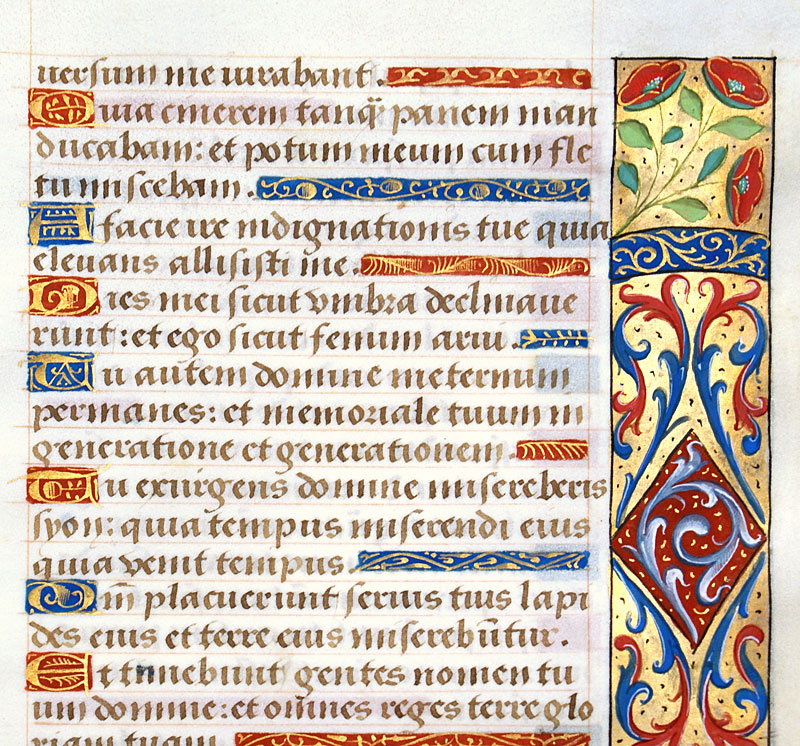 uersum me iurabant.
Quia cinerem tanq̃ panem man
ducabam: et potum meum cum fle
tu miscebam.
A facie ire indignationis tue quia
eleuans allisisti me.
Dies mei sicut vmbra declinaue
runt: et ego sicut fenum arui.
Tu autem domine ineternum
permanes: et memoriale tuum in
generatione et generationem.
Tu exurgens domine misereberis
syon: quia tempus miserendi eius
quia venit tempus.
Qm̃ placuerunt seruis tuis lapi
des eius et terre eius miserebũtur.
Et timebunt gentes nomen tu
um domine: et omnes reges terre glo
riam tuam.